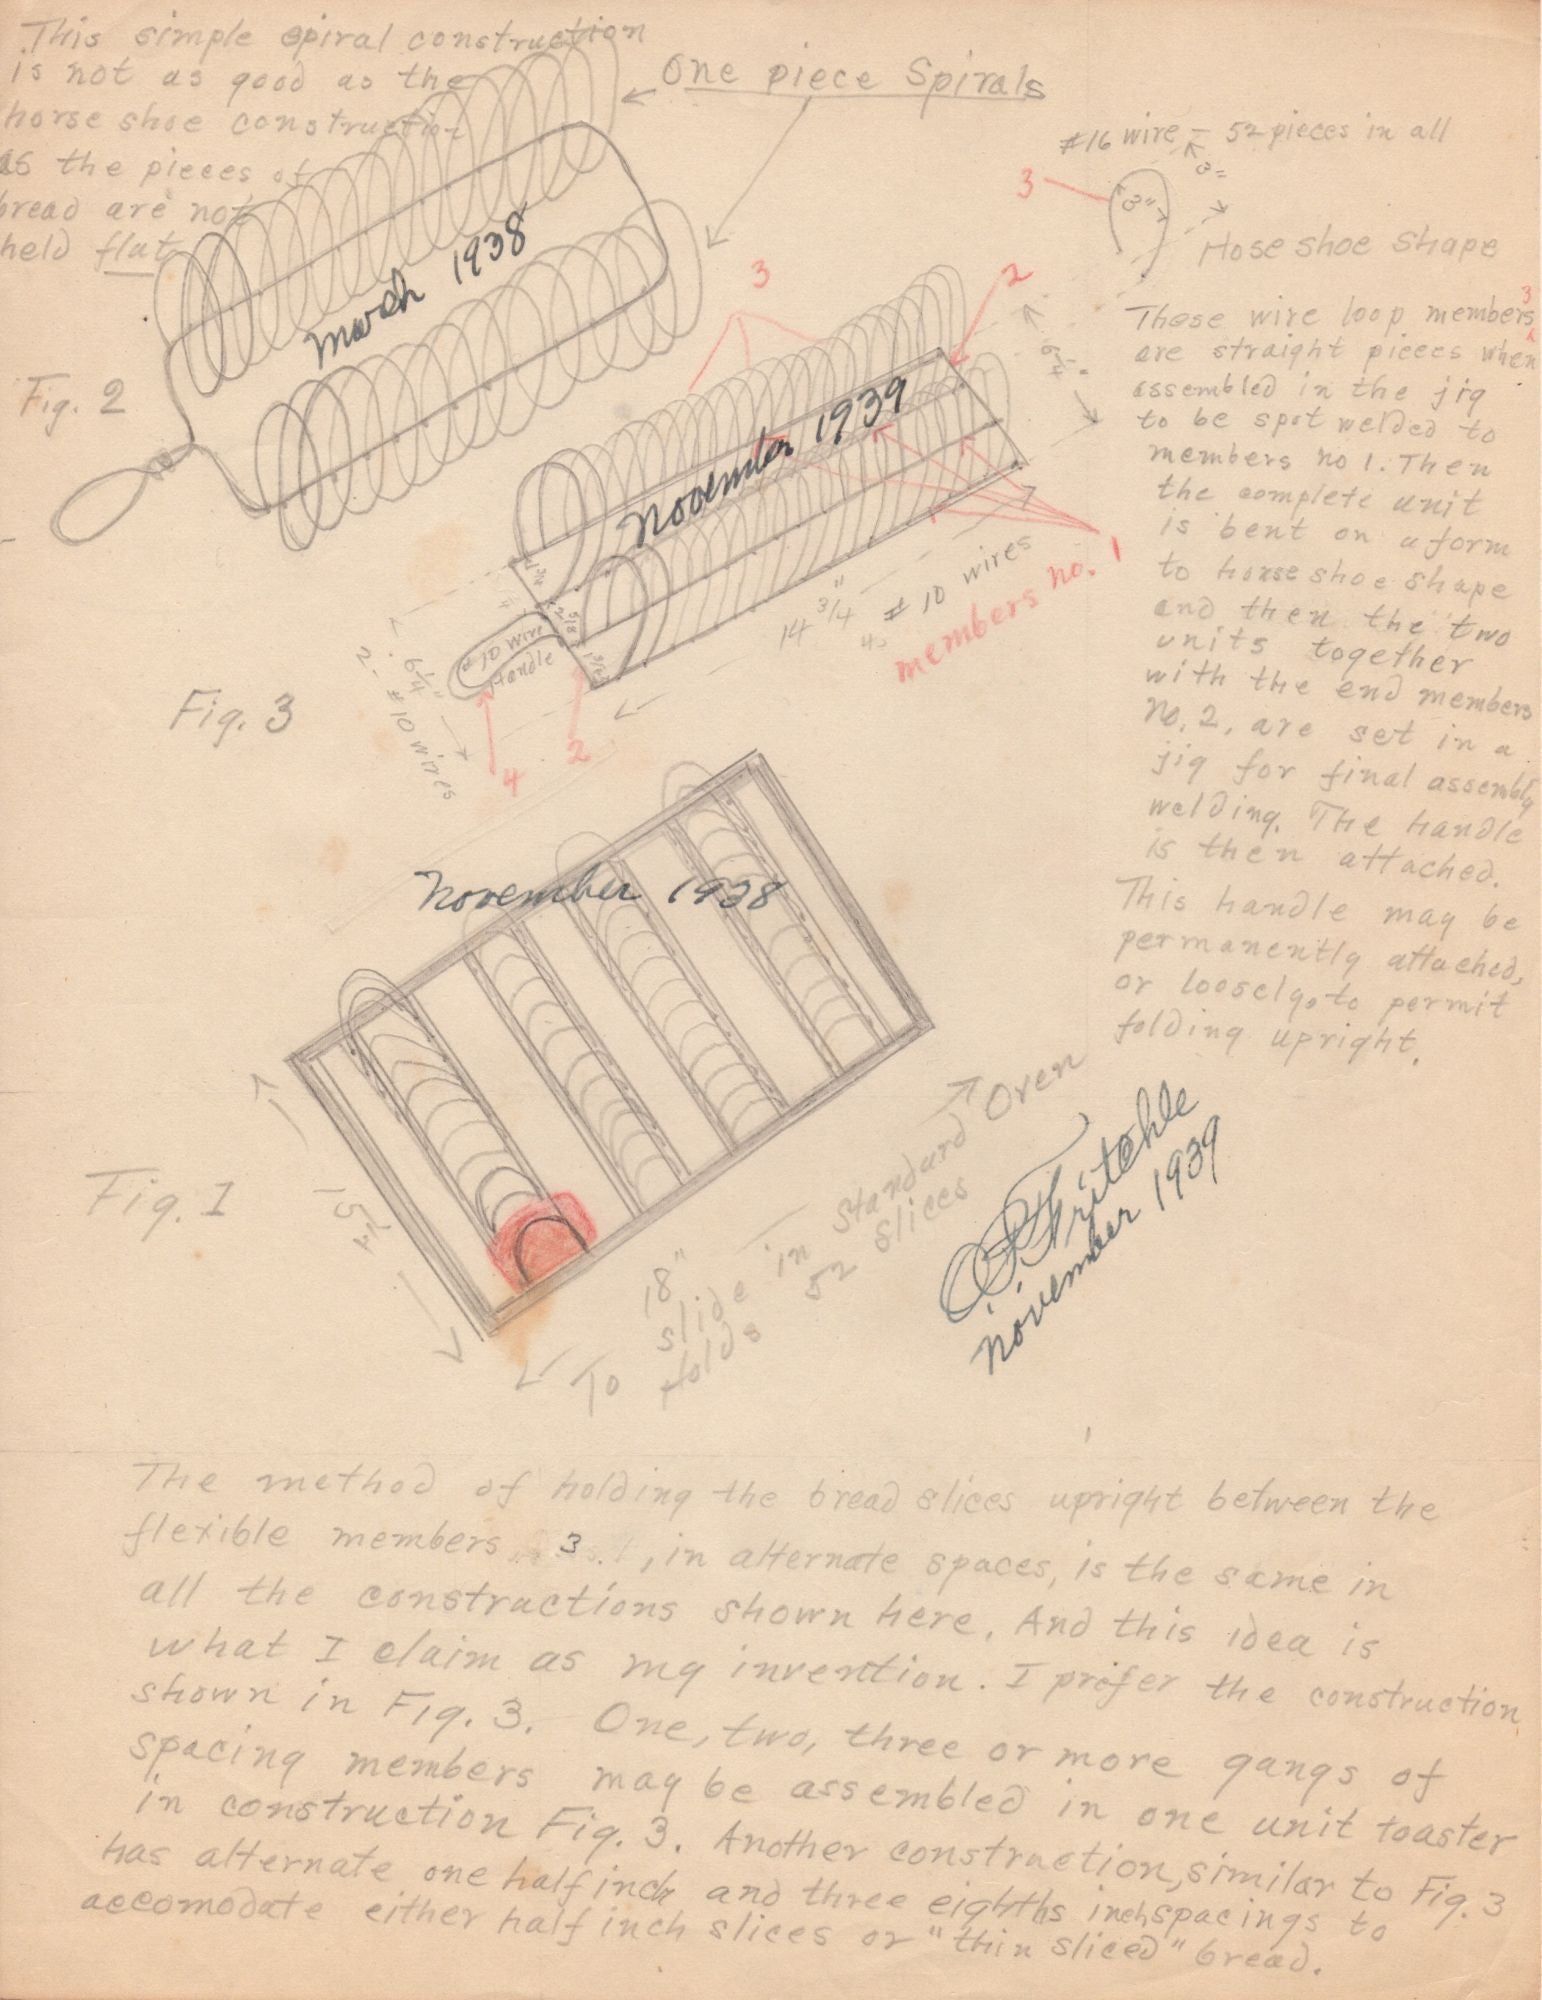 This simple spiral construction
is not as good as the
horse shoe construction
as the pieces of
bread are not
held flat
One piece Spirals
#16 wire - 52 pieces in all
3
3"
3"
Hose shoe shape
March 1938
Fig. 2
3
2
6 1/4"
These wire loop members 3
are straight pieces when
assembled in the jig
to be spot welded to
members no 1. Then
the complete unit
is bent on a form
to horse shoe shape
and then the two
units together
with the end members
No. 2, are set in a
jig for final assembly
welding. The handle
is then attached.
This handle may be
permanently attached,
or loosely, to permit
folding upright.
November 1939
1 3/16
2 5/8
1 3/16
#10 wire
Handle
14 3/4"
4, #10 wires
members no. 1
6 1/4"
2- #10 wires
4
2
Fig. 3
November 1938
Fig. 1
15 1/4
18"
To slide in Standard Oven
Holds 52 slices
O.P. Fritchle
November 1939
The method of holding the bread slices upright between the
flexible members 3, in alternate spaces, is the same in
all the constructions shown here. And this idea is
what I claim as my invention. I prefer the construction
shown in Fig. 3. One, two, three or more gangs of
spacing members may be assembled in one unit toaster
in construction Fig. 3. Another construction, similar to Fig. 3
has alternate one half inch and three eighths inch spacings to
accomodate either half inch slices or "thin sliced" bread.